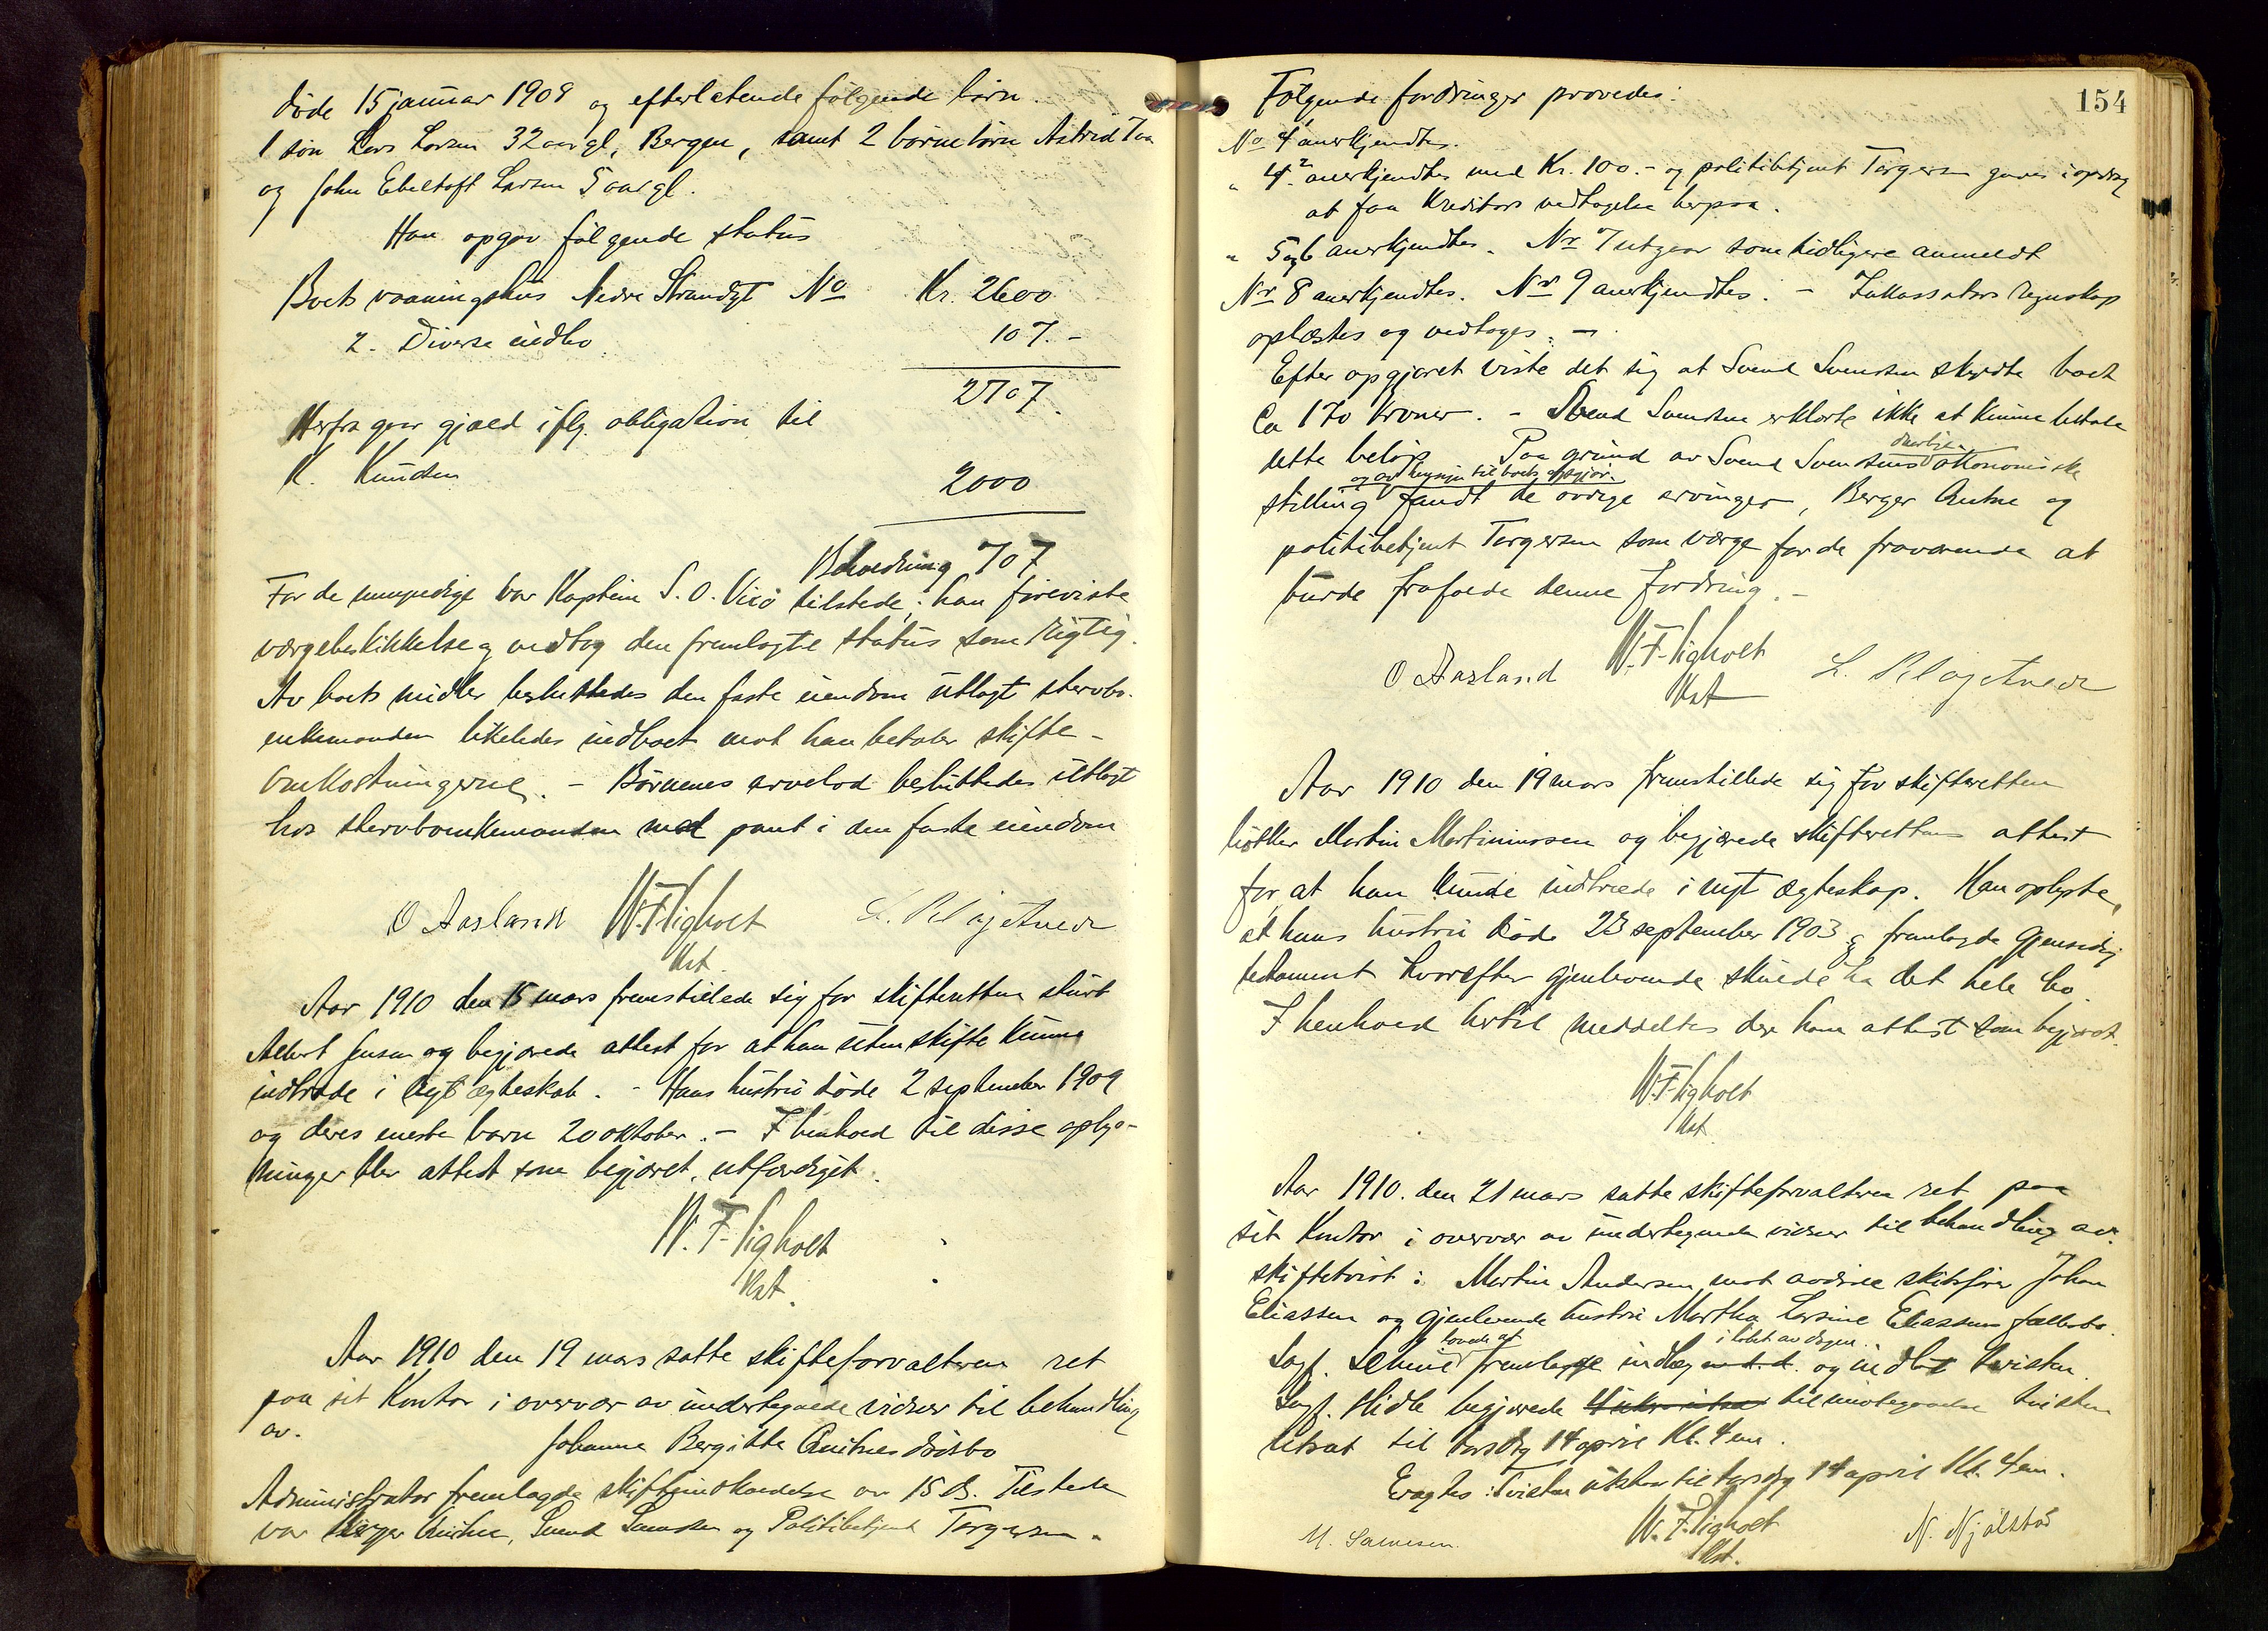 døde 15 januar 1908 og efterlatende følgende børn.
1 søn Lars Larsen 32 aar gl, Bergen, samt 2 børnebørn Astrid 7 aar
og John Ebeltoft Larsen 5 aar gl.
Han opgav følgende status
Boets vaaningshus Nedre Strandgt No Kr. 2600
2. Diverse indbo 107.-
2707.
Herfra gaar gjæld iflg. obligation til
K. Knudsen 2000
Beholdning 707
For de umyndige var Kaptein S. O. tilstede; han foreviste
værgebeskikkelse og vedtog den fremlagte status som rigtig.
Av boets midler besluttedes den faste eiendom utlagt stervbo-
enkemanden likeledes indboet mot han betaler skifte-
omkostningerne. - Børnenes arvelod besluttedes utlagt
hos stervboenkemanden med pant i den faste eiendom
O Aasland W. F. Sigholt
Kst.
Aar 1910 den 15 mars fremstillede sig for skifteretten
Albert Jensen og begjærede attest for at han uten skifte kunne
indtræde i nyt ægteskab. - Hans hustru døde 2 september 1909
og deres eneste barn 20 oktober. - I henhold til disse oplys-
ninger blev attest som begjæret, utfærdiget.
W. F. Sigholt
Kst.
Aar 1910 den 19 mars satte skifteforvalteren ret
paa sit kontor i overvær av undertegnede vidner til behandling
av.
Johanne Bergitte
Administrator fremlagde skifteindkaldelse av 15 ds. Tilstede
var Berger Svend Svendsen og Politibetjent Torgersen.
154
Følgende fordringer prøvedes:
No 4¹ anerkjendtes.
" 4² anerkjendtes med Kr. 100.- og politibetjent Torgersen gaves i opdrag
at faa Kreditors vedtagelse herpaa.
" 5 og 6 anerkjendtes. Nr 7 utgaar som tidligere anmeldt
Nr 8 anerkjendtes. Nr 9 anerkjendtes. - Inkassators regnskap
oplæstes og vedtoges. -
Efter opgjøret viste det sig at Svend Svendsen skyldte boet
Ca 170 Kroner. - Svend Svendsen erklærte ikke at kunne betale
dette beløp. Paa grund av Svend Svendsens daarlige økonomiske
og av hensyn til boets opgjør
stilling fandt de øvrige arvinger, Berger og
politibetjent Torgersen som værge for de fraværende at
burde frafalde denne fordring. -
O Aasland W. F. Sigholt
Kst
Aar 1910 den 19 mars fremstillede sig for skifteretten
bøtker Martin Martiniussen og begjærede skifterettens attest
for, at han kunde indtræde i nyt ægteskap. Han oplyste,
at hans hustru døde 23 september 1903 og fremlagde gjensidig
testament hvorefter gjenlevende skulde ha det hele bo.
I henhold hertil meddeltes der ham attest som begjæret.
W. F. Sigholt
Kst.
Aar 1910. den 21 mars satte skifteforvalteren ret paa
sit kontor i overvær av undertegnede vidner til behandling av
skiftetvist: Martin Andersen mot avdøde skibsfører Johan
Eliassen og gjenlevende hustru Martha Larsine Eliassens fællesbo.
lovede at i løbet av dagen
Sagf. fremlægge indlæg og indlot tvisten.
Sagf. Hidle begjærede til imøtegaaelse tvisten
utsat til torsdag 14 april Kl. 4 em.
Eragtes: Tvisten utstaar til torsdag 14 april Kl. 4 em.
M. Samesen. W. F. Sigholt N. Njølstad
Kst.